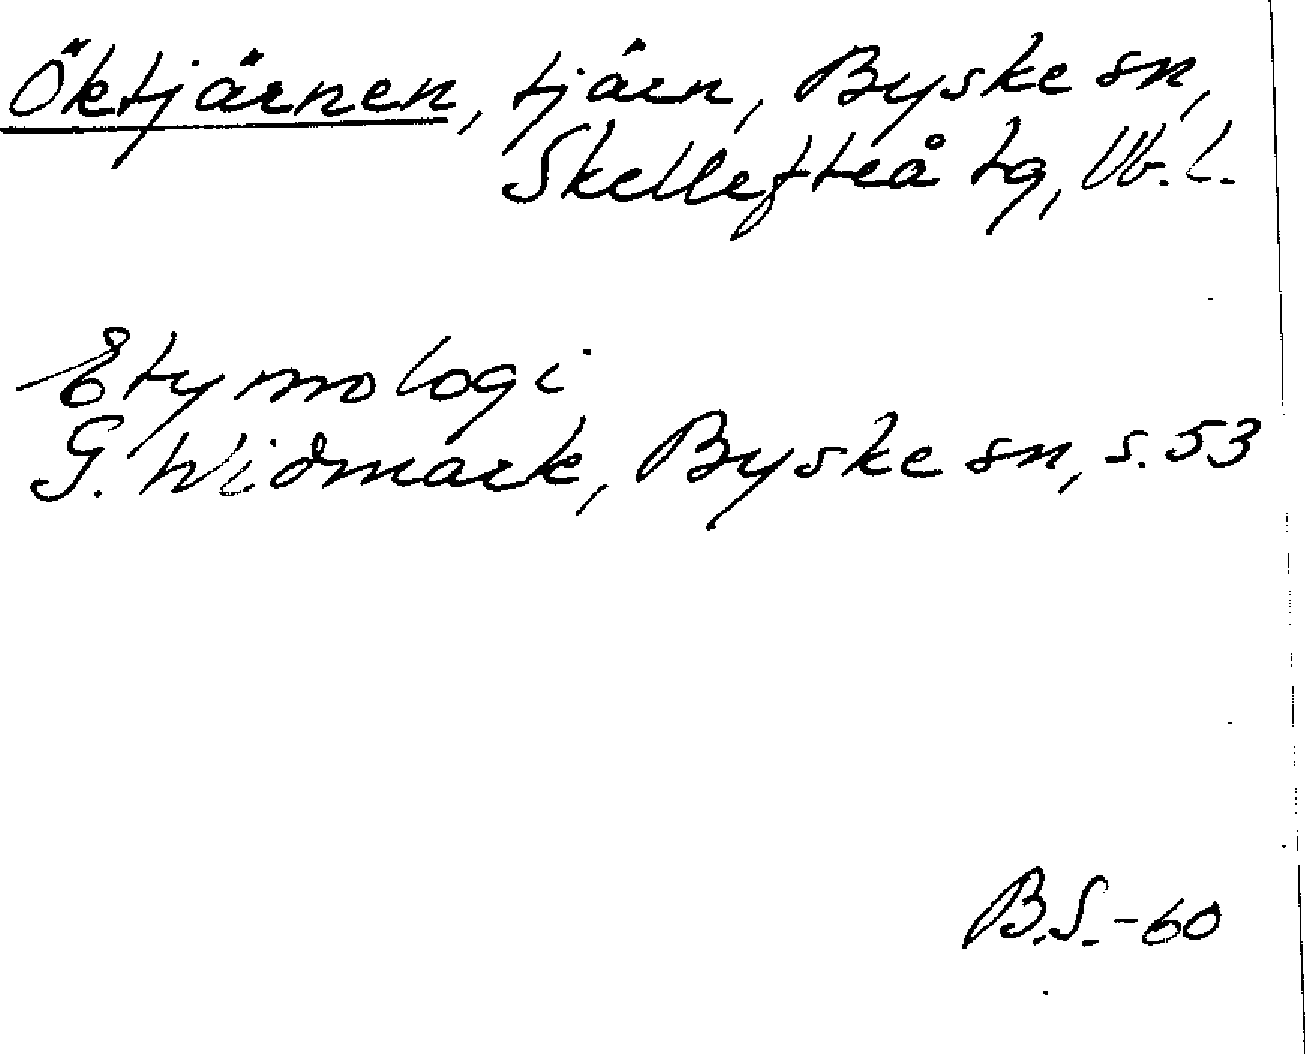 Öktjärnen, tjärn, Byske sn,
Skellefteå tg, Vb. l.
Etymologi
G. Widmark, Byske sn, s. 53
B.S. -60